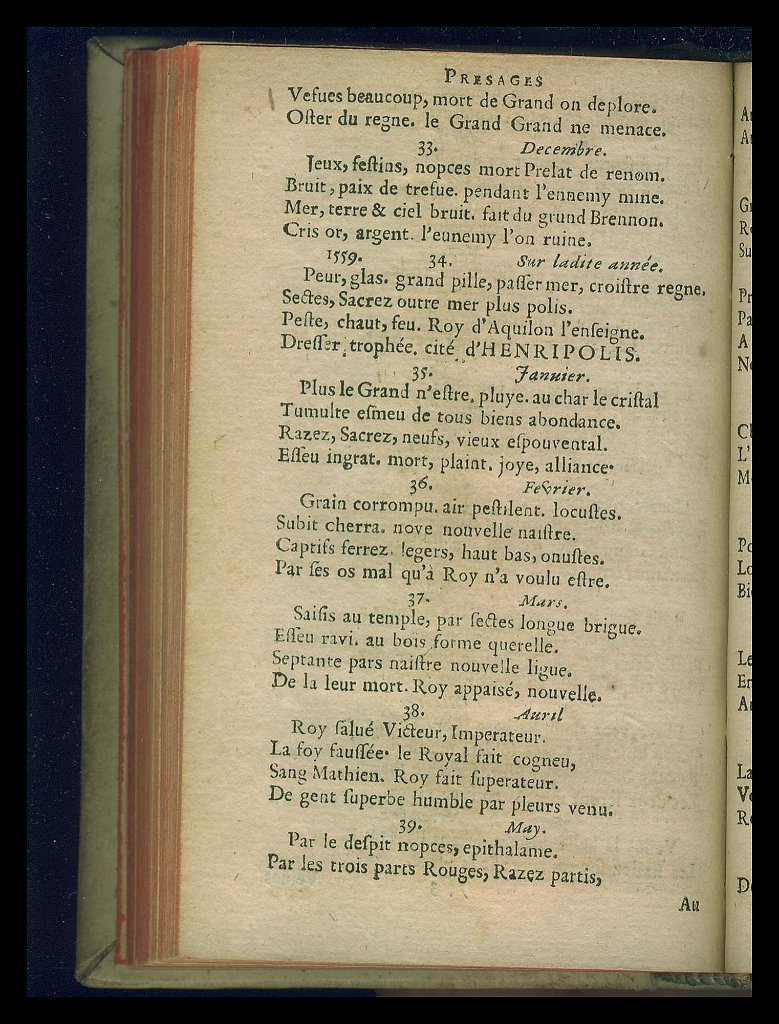 PRESAGES
Vefues beaucoup, mort de Grand on deplore.
Oſter du regne. le Grand Grand ne menace.
33. Decembre.
Jeux, feſtins, nopces mort Prelat de renom.
Bruit, paix de trefue. pendant l'ennemy mine.
Mer, terre & ciel bruit. fait du grund Brennon.
Cris or, argent. l'eunemy l'on ruine.
1559. 34. Sur ladite année.
Peur, glas. grand pille, paſſer mer, croiſtre regne.
Sectes, Sacrez outre mer plus polis.
Peſte, chaut, feu. Roy d'Aquilon l'enſeigne.
Dreſſer, trophée. cité d'HENRIPOLIS.
35. Januier.
Plus le Grand n'eſtre. pluye. au char le criſtal
Tumulte eſmeu de tous biens abondance.
Razez, Sacrez, neufs, vieux eſpouvental.
Eſſeu ingrat. mort, plaint. joye, alliance.
36. Fevrier.
Grain corrompu. air peſtilent. locuſtes.
Subit cherra. nove nouvelle naiſtre.
Captifs ferrez. legers, haut bas, onuſtes.
Par ſes os mal qu'à Roy n'a voulu eſtre.
37. Mars.
Saiſis au temple, par ſectes longue brigue.
Eſſeu ravi. au bois forme querelle.
Septante pars naiſtre nouvelle ligue.
De la leur mort. Roy appaisé, nouvelle.
38. Auril
Roy ſalué Victeur, Imperateur.
La foy fauſſée. le Royal fait cogneu,
Sang Mathien. Roy fait ſuperateur.
De gent ſuperbe humble par pleurs venu.
39. May.
Par le deſpit nopces, epithalame.
Par les trois parts Rouges, Razez partis,
Au